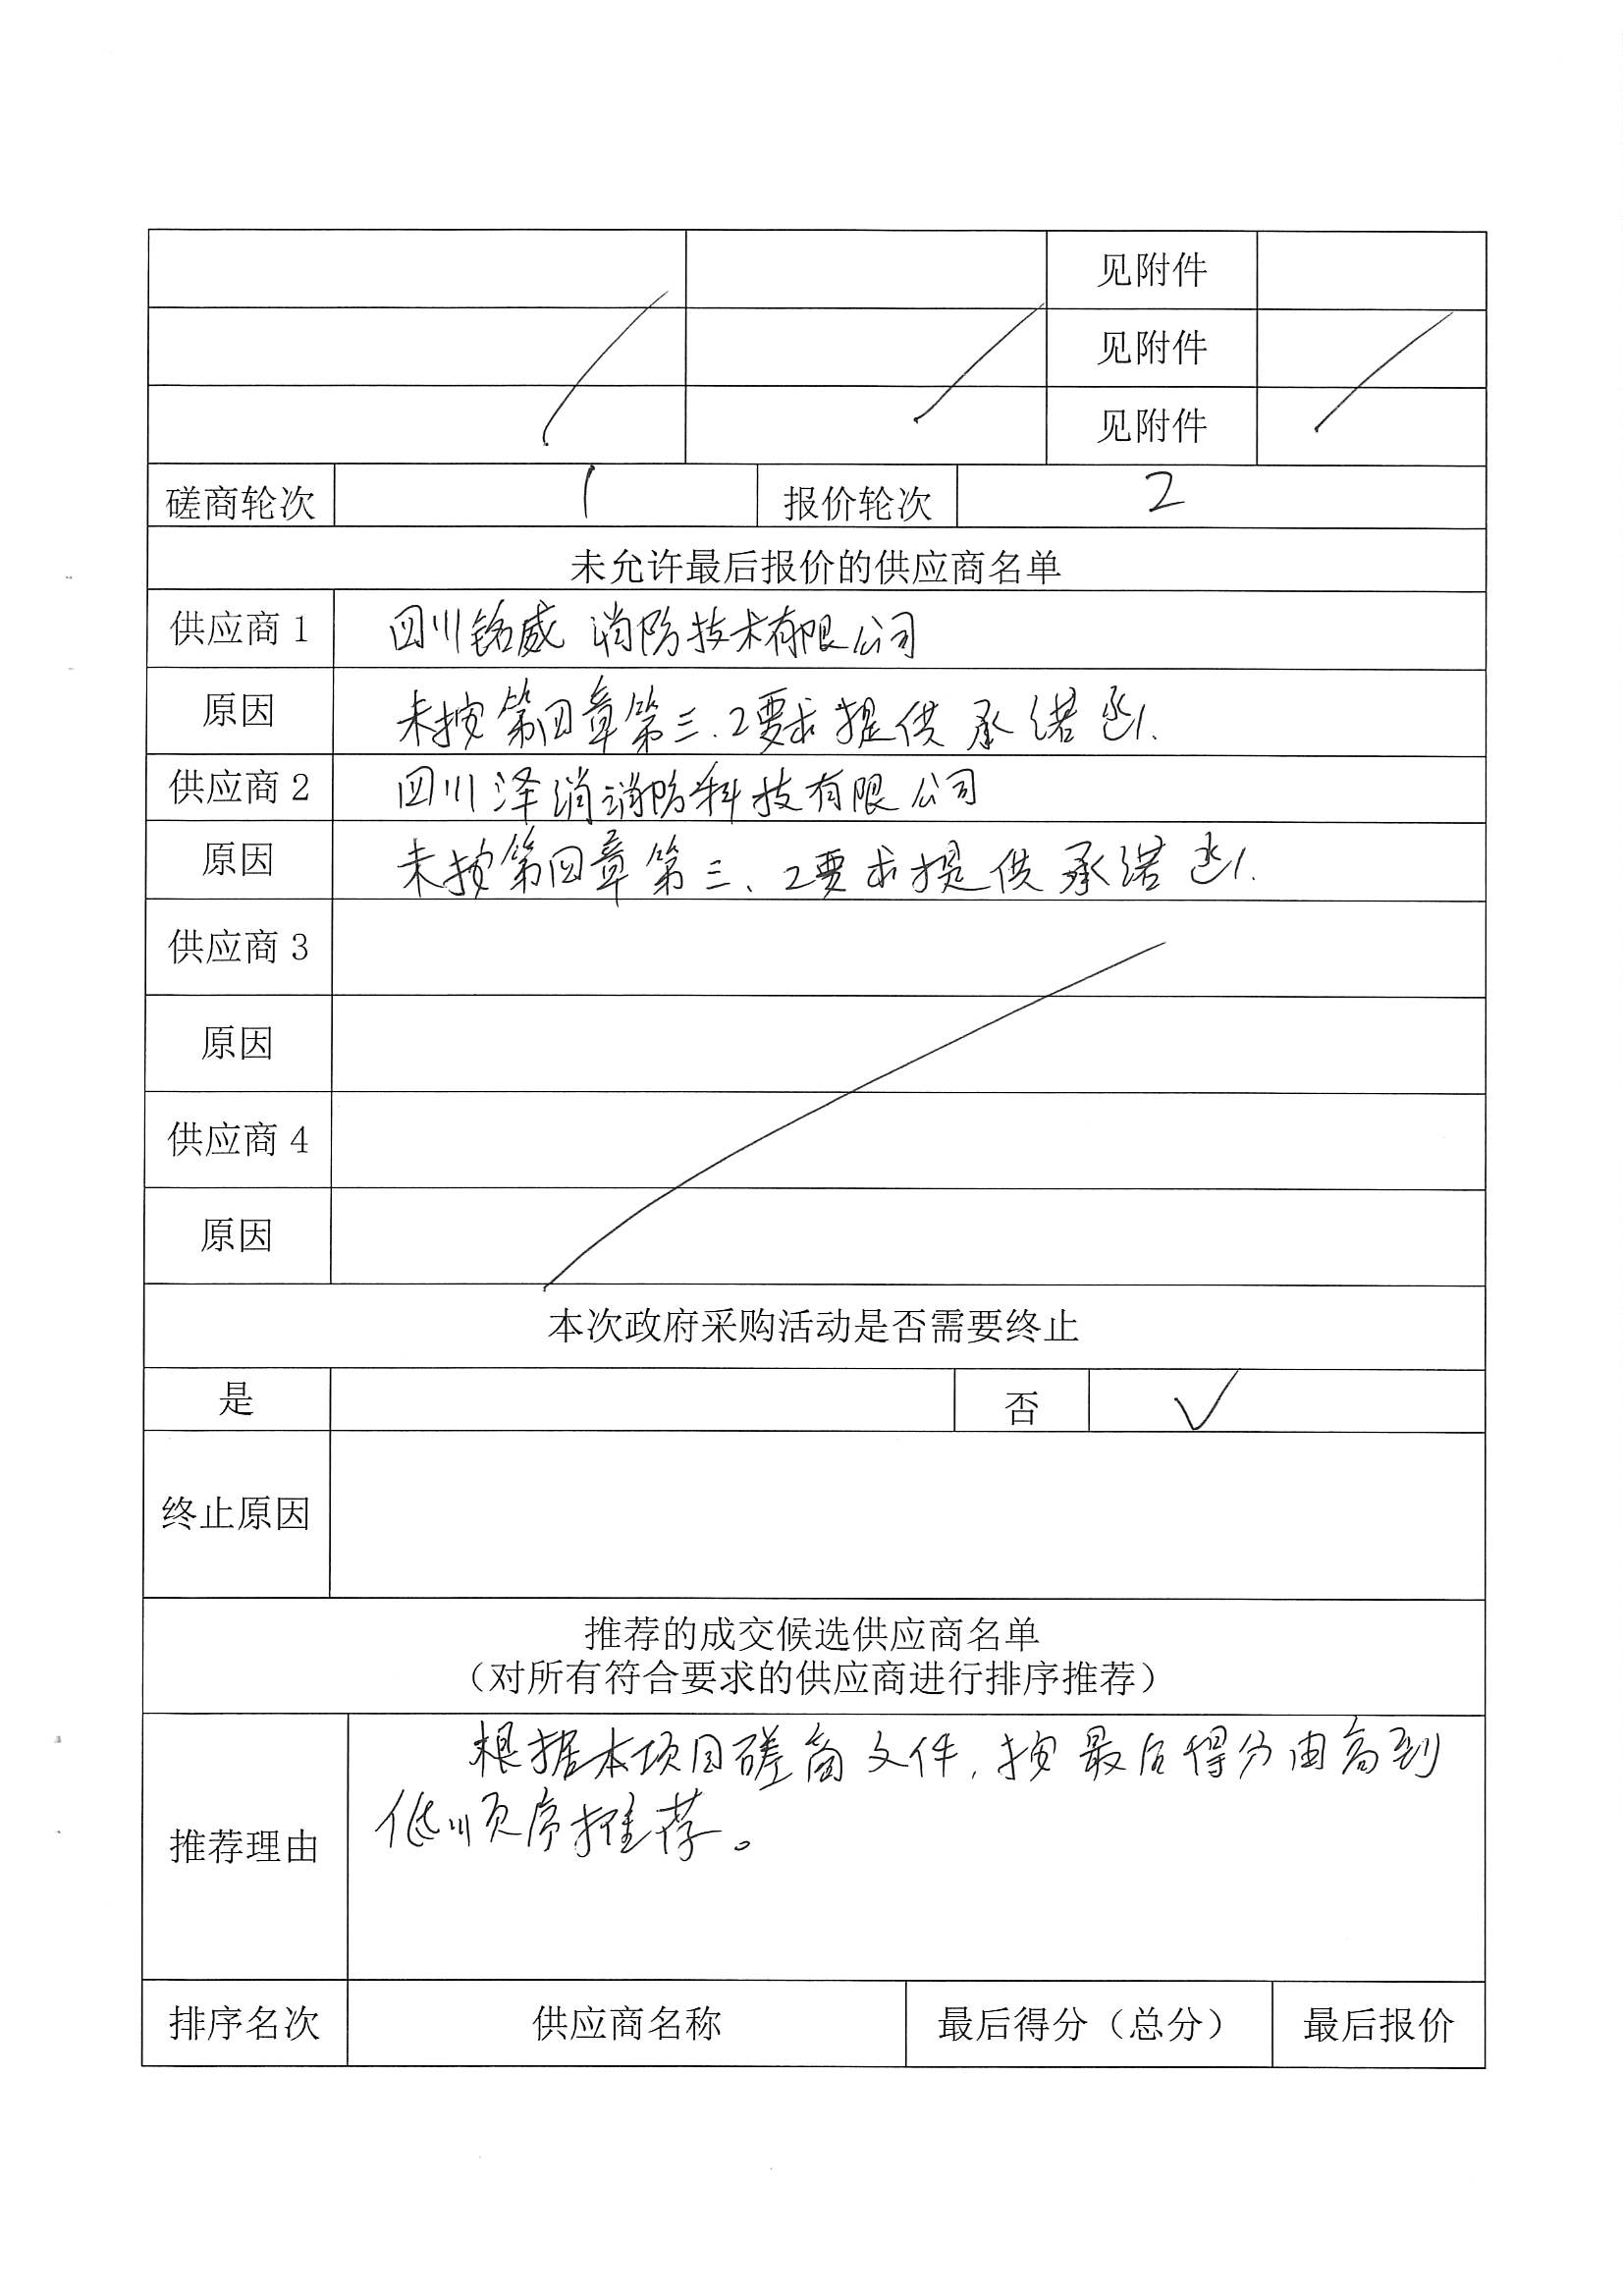 见附件
见附件
见附件
磋商轮次 1 报价轮次 2
未允许最后报价的供应商名单
供应商1 四川铭威消防技术有限公司
原因 未按第四章第三.2要求提供承诺函.
供应商2 四川泽消消防科技有限公司
原因 未按第四章第三、2要求提供承诺函.
供应商3
原因
供应商4
原因
本次政府采购活动是否需要终止
是 否 √
终止原因
推荐的成交候选供应商名单
（对所有符合要求的供应商进行排序推荐）
根据本项目磋商文件,按最后得分由高到
低顺序推荐。
推荐理由
排序名次 供应商名称 最后得分（总分） 最后报价